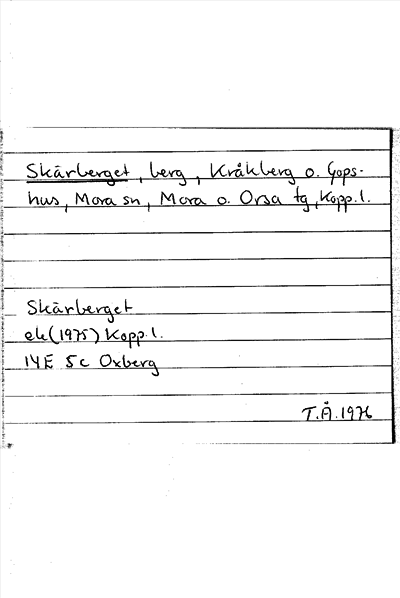 Skärberget, berg, Kråkberg o. Gops-
hus, Mora sn, Mora o. Orsa tg, Kopp. l.
Skärberget
ek (1975) Kopp. l.
14E 5c Oxberg
T.Å. 1976